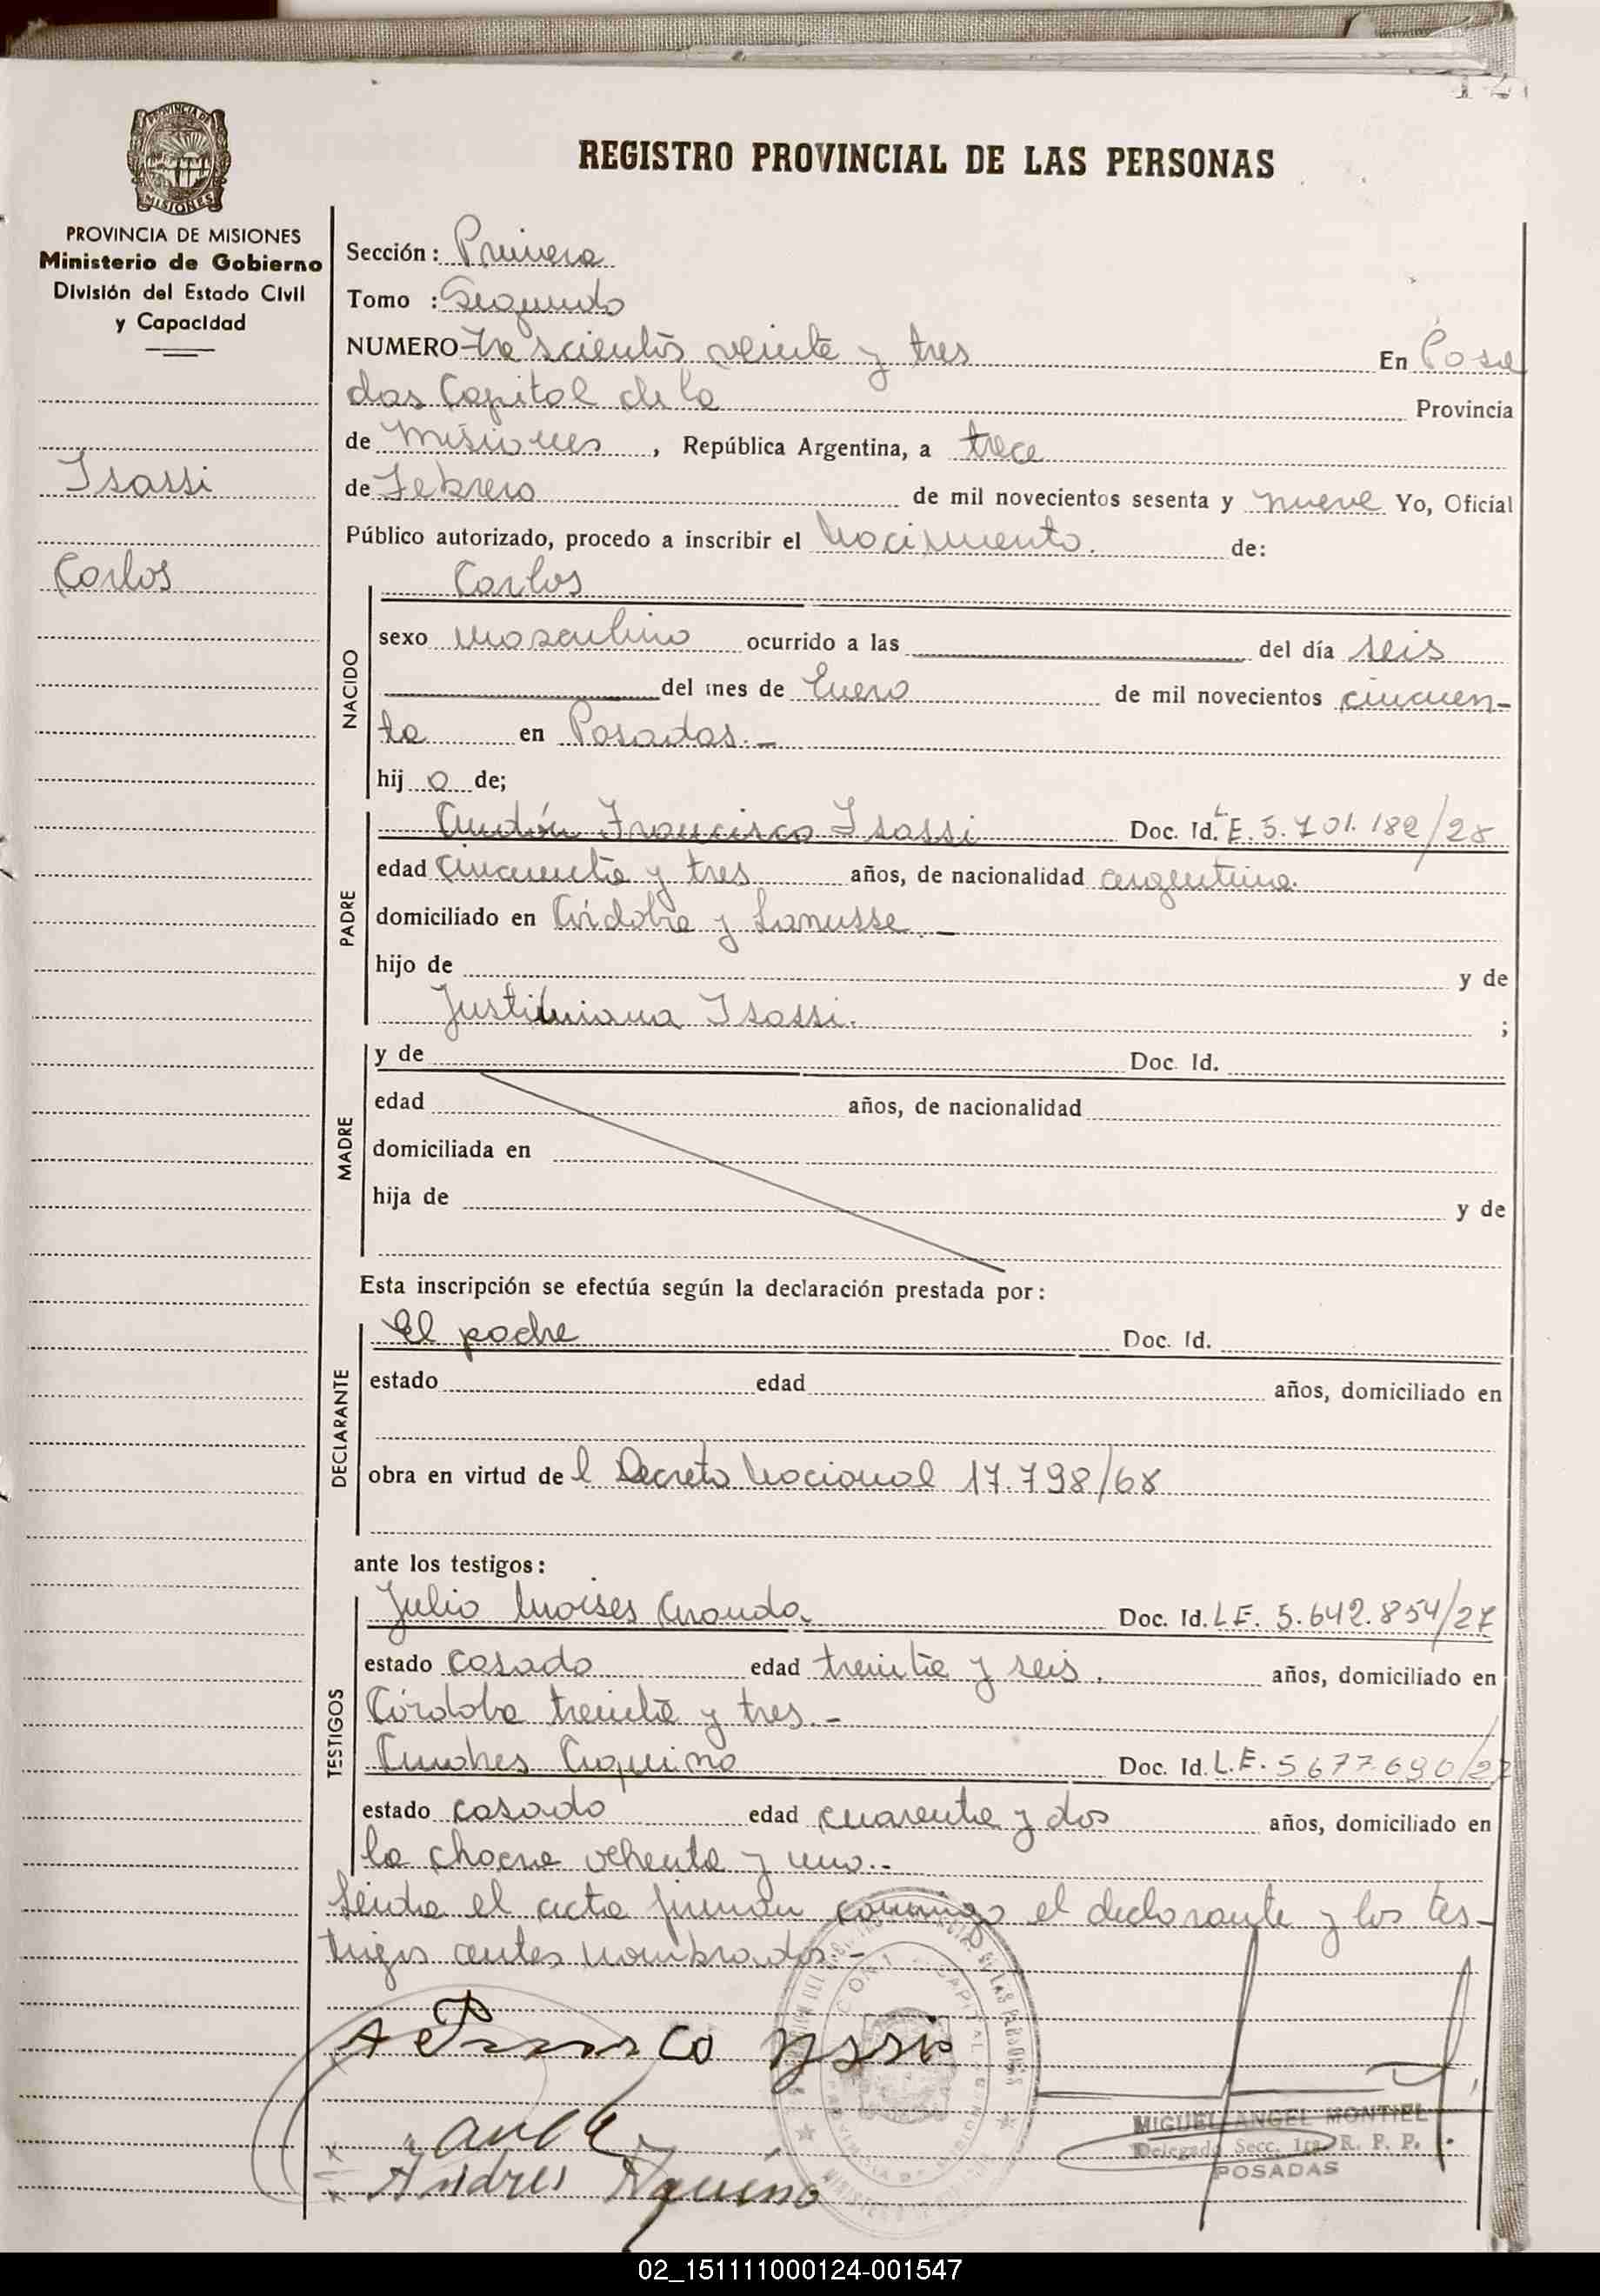 REGISTRO PROVINCIAL DE LAS PERSONAS
PROVINCIA DE MISIONES
Ministerio de Gobierno
División del Estado Civil
y Capacidad
Isassi
Carlos
Sección: Primera
Tomo : Segundo
NUMERO trescientos veinte y tres En Posa
das Capital de la Provincia
de Misiones, República Argentina, a trece
de Febrero de mil novecientos sesenta y nueve Yo, Oficial
Público autorizado, procedo a inscribir el Nacimiento. de:
NACIDO
Carlos
sexo masculino ocurrido a las del día seis
del mes de Enero de mil novecientos cincuen-
ta en Posadas.-
hij o de;
PADRE
Francisco Isassi Doc. Id. L E. 5.701.182/28
edad cincuenta y tres años, de nacionalidad argentina.
domiciliado en Córdoba y Lanusse.-
hijo de y de
Justiniana Isassi. ;
MADRE
y de Doc. Id.
edad años, de nacionalidad
domiciliada en
hija de y de
Esta inscripción se efectúa según la declaración prestada por:
DECLARANTE
El padre Doc. Id.
estado edad años, domiciliado en
obra en virtud de l Decreto Nacional 17.798/68
ante los testigos:
TESTIGOS
Julio Moises Doc. Id. L E. 5.642.854/27
estado casado edad treinta y seis. años, domiciliado en
Córdoba treinta y tres.-
Andres Aquino Doc. Id. L.E. 5677.690/27
estado casado edad cuarenta y dos años, domiciliado en
la chacra ochenta y uno.-
Leida el acta firman conmigo el declarante y los tes-
tigos antes nombrados.-
MIGUEL ANGEL MONTIEL
Delegado Secc. 1ra R. P. P.
POSADAS
Andres Aquino
02_151111000124-001547